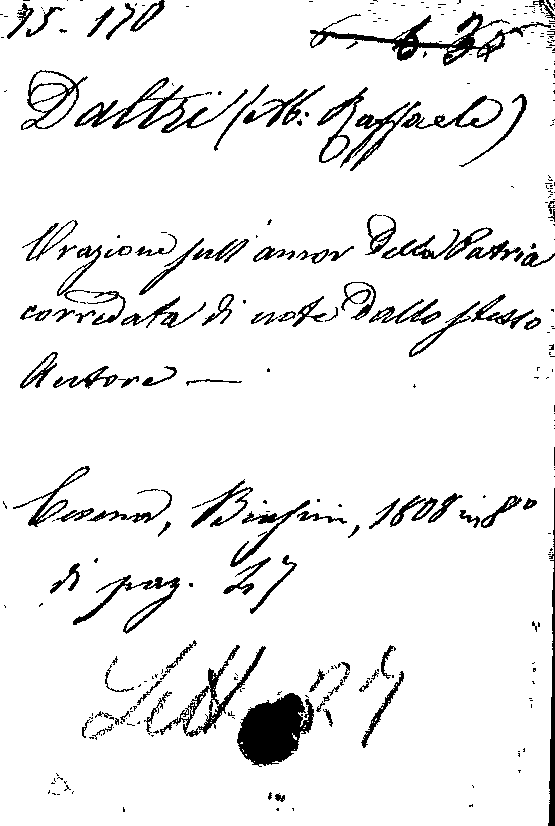 15-170
6. 6. 38
Daltri (Ab: Raffaele)
Orazione sull'amor della Patria
corredata di note dallo stesso
Autore —
Cesena, Biasini, 1808 in 8°
di pag. 27
Lett